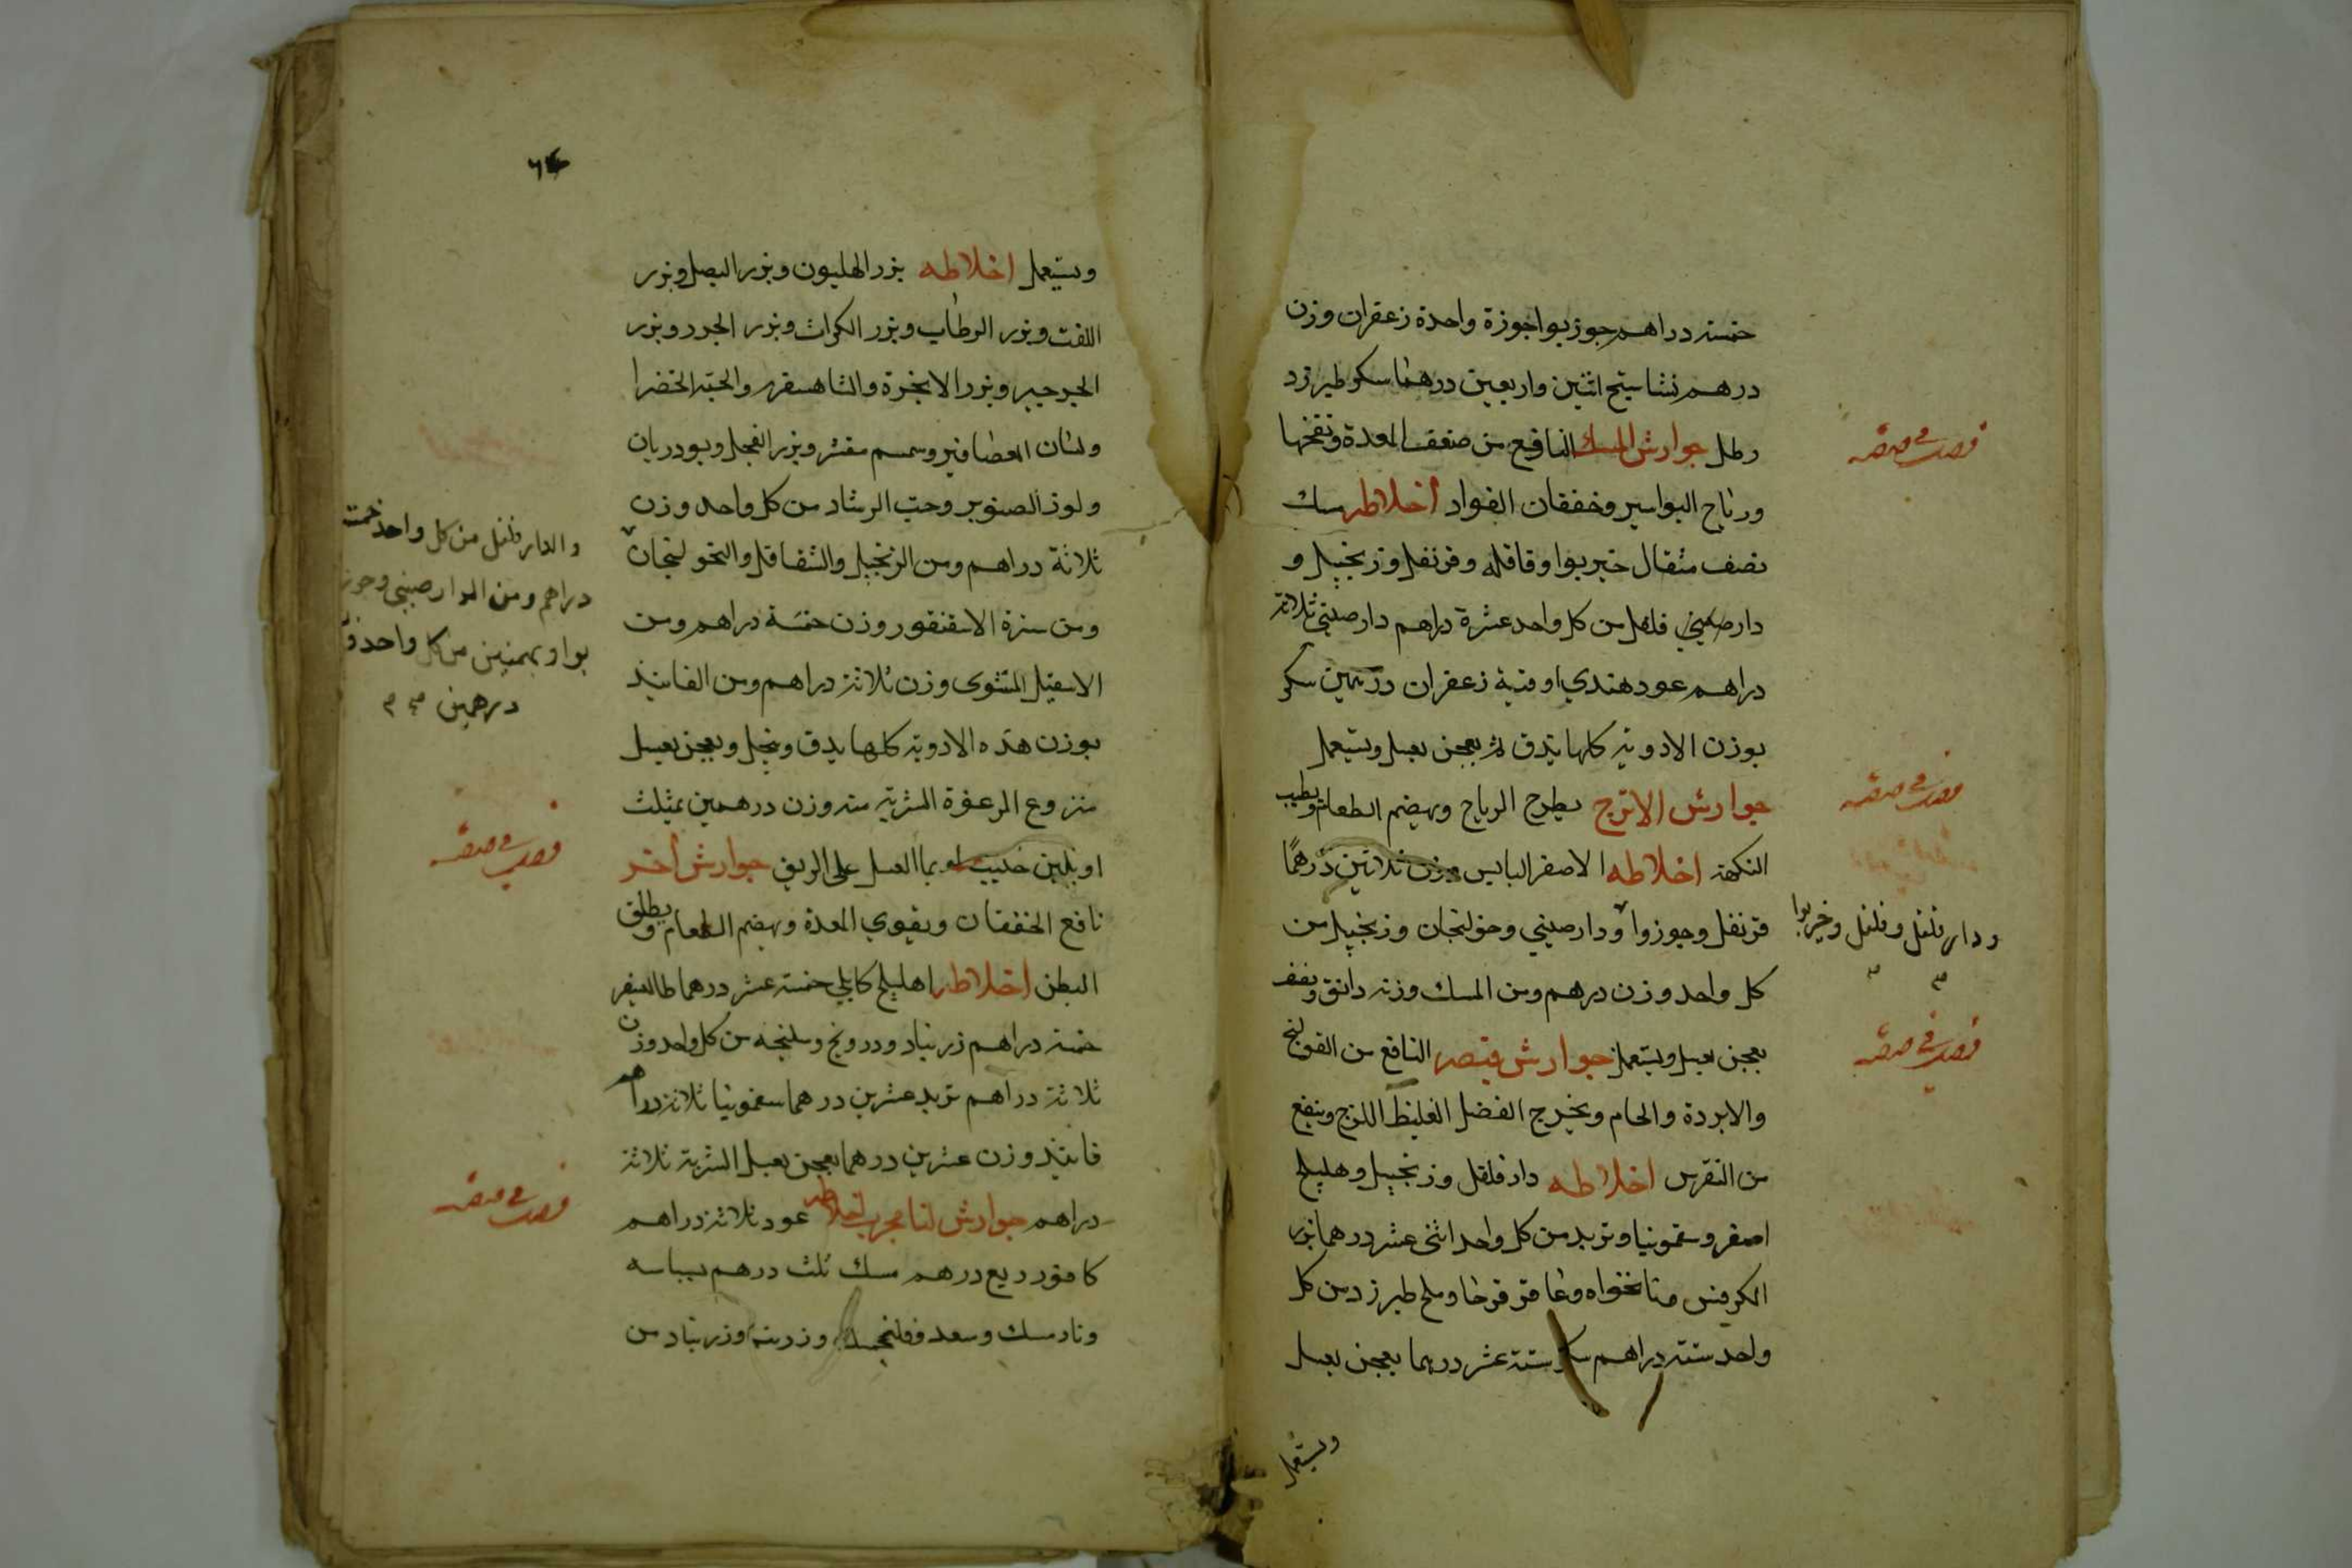 خمسة دراهم جوز بوا جوزة واحدة زعفران وزن
درهم نشاستج اثنين واربعين درهما سكر طبرزد
رطل جوارش المسك النافع من ضعف المعدة ونفخها
ورياح البواسير وخفقان الفواد أخلاطه مسك
نصف مثقال خيربوا وقاقله وقرنفل وزنجبيل و
دارصيني فلفل من كل واحد عشرة دراهم دارصيني ثلاثة
دراهم عود هندي اوقية زعفران درهمين سكر
بوزن الادوية كلها يدق ثم يعجن بعسل ويستعمل
جوارش الاترج يطرح الرياح ويهضم الطعام ويطيب
النكهة اخلاطه الاصفر اليابس وزن ثلاثين درهمًا
قرنفل وجوزبوا ودارصيني وخولنجان وزنجبيل من
ودارفلفل وفلفل وخيربوا
كل واحد وزن درهم ومن المسك وزن دانق ونصف
يعجن بعسل ويستعمل جوارش قيصر النافع من القولنج
والابردة والخام ويخرج الفضل الغليظ اللزج وينفع
من النقرس اخلاطه دارفلفل وزنجبيل وهليلج
اصفر وسقمونيا وتربد من كل واحد اثنى عشر درهما بزر
الكرفس ونانخواه وعاقرقرحا وملح طبرزد من كل
واحد ستة دراهم سكر ستة عشر درهما يعجن بعسل
ويستعمل
ويستعمل اخلاطه بزر الهليون وبزر البصل وبزر
اللفت وبزر الرطاب وبزر الكراث وبزر الجزر وبزر
الجرجير وبزر الانجرة والشاهسفرم والحبة الخضرا
ولسان العصافير وسمسم مقشر وبزر الفجل وبودريان
ولوز الصنوبر وحب الرشاد من كل واحد وزن
ثلاثة دراهم ومن الزنجبيل والشقاقل والخولنجان
والدارفلفل من كل واحد خمسة
دراهم ومن الدارصيني وجوز
بوا وبهمنين من كل واحد
درهمين
ومن سرة الاسقنقور وزن خمسة دراهم ومن
الاسقيل المشوى وزن ثلاثة دراهم ومن الفانيذ
بوزن هذه الادوية كلها يدق وينخل ويعجن بعسل
منزوع الرغوة الشربة منه وزن درهمين بمثلث
او بلبن حليب او بما العسل على الريق جوارش أخر
نافع الخفقان ويقوي المعدة ويهضم الطعام ويطلق
البطن اخلاطه اهليلج كابلي خمسة عشر درهما طاليسفر
خمسة دراهم زرنباد ودرونج وسليخه من كل واحد وزن
ثلاثة دراهم تربد عشرين درهما سقمونيا ثلاثة دراهم
فانيذ وزن عشرين درهما يعجن بعسل الشربة ثلاثة
دراهم جوارش لنا مجرب اخلاطه عود ثلاثة دراهم
كافور ربع درهم مسك ثلث درهم بسباسه
ونارمسك وسعد وفلنجمسك وزرنب وزرنباد من